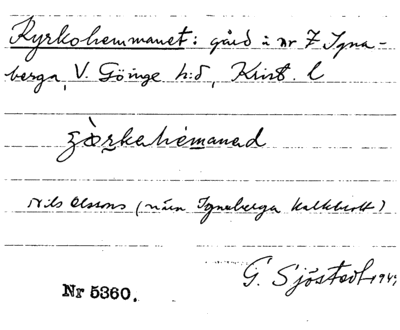 Kyrkohemmanet: gård å nr 7 Igna-
berga, V. Göinge h:d, Krist. l
Nils Olssons (nära Ignaberga kalkbrott)
G. Sjöstedt
Nr 5360.